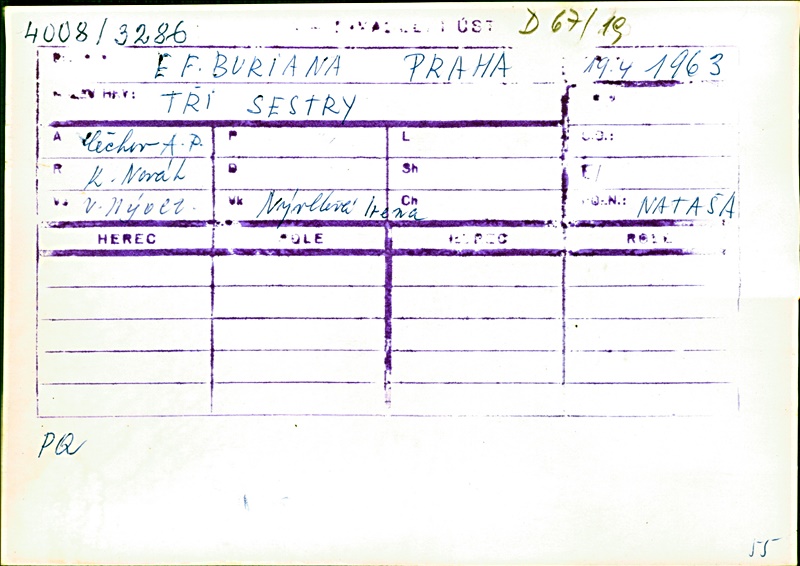 4008/3286 ÚST D 67/19
E F. BURIANA PRAHA 19.4 1963
TŘI SESTRY
A Čechov A. P. P L
R K. Novák D Sh
V. Nývlt Vk Nývltová Irena Ch NATAŠA
HEREC ROLE HEREC ROLE
PQ
55